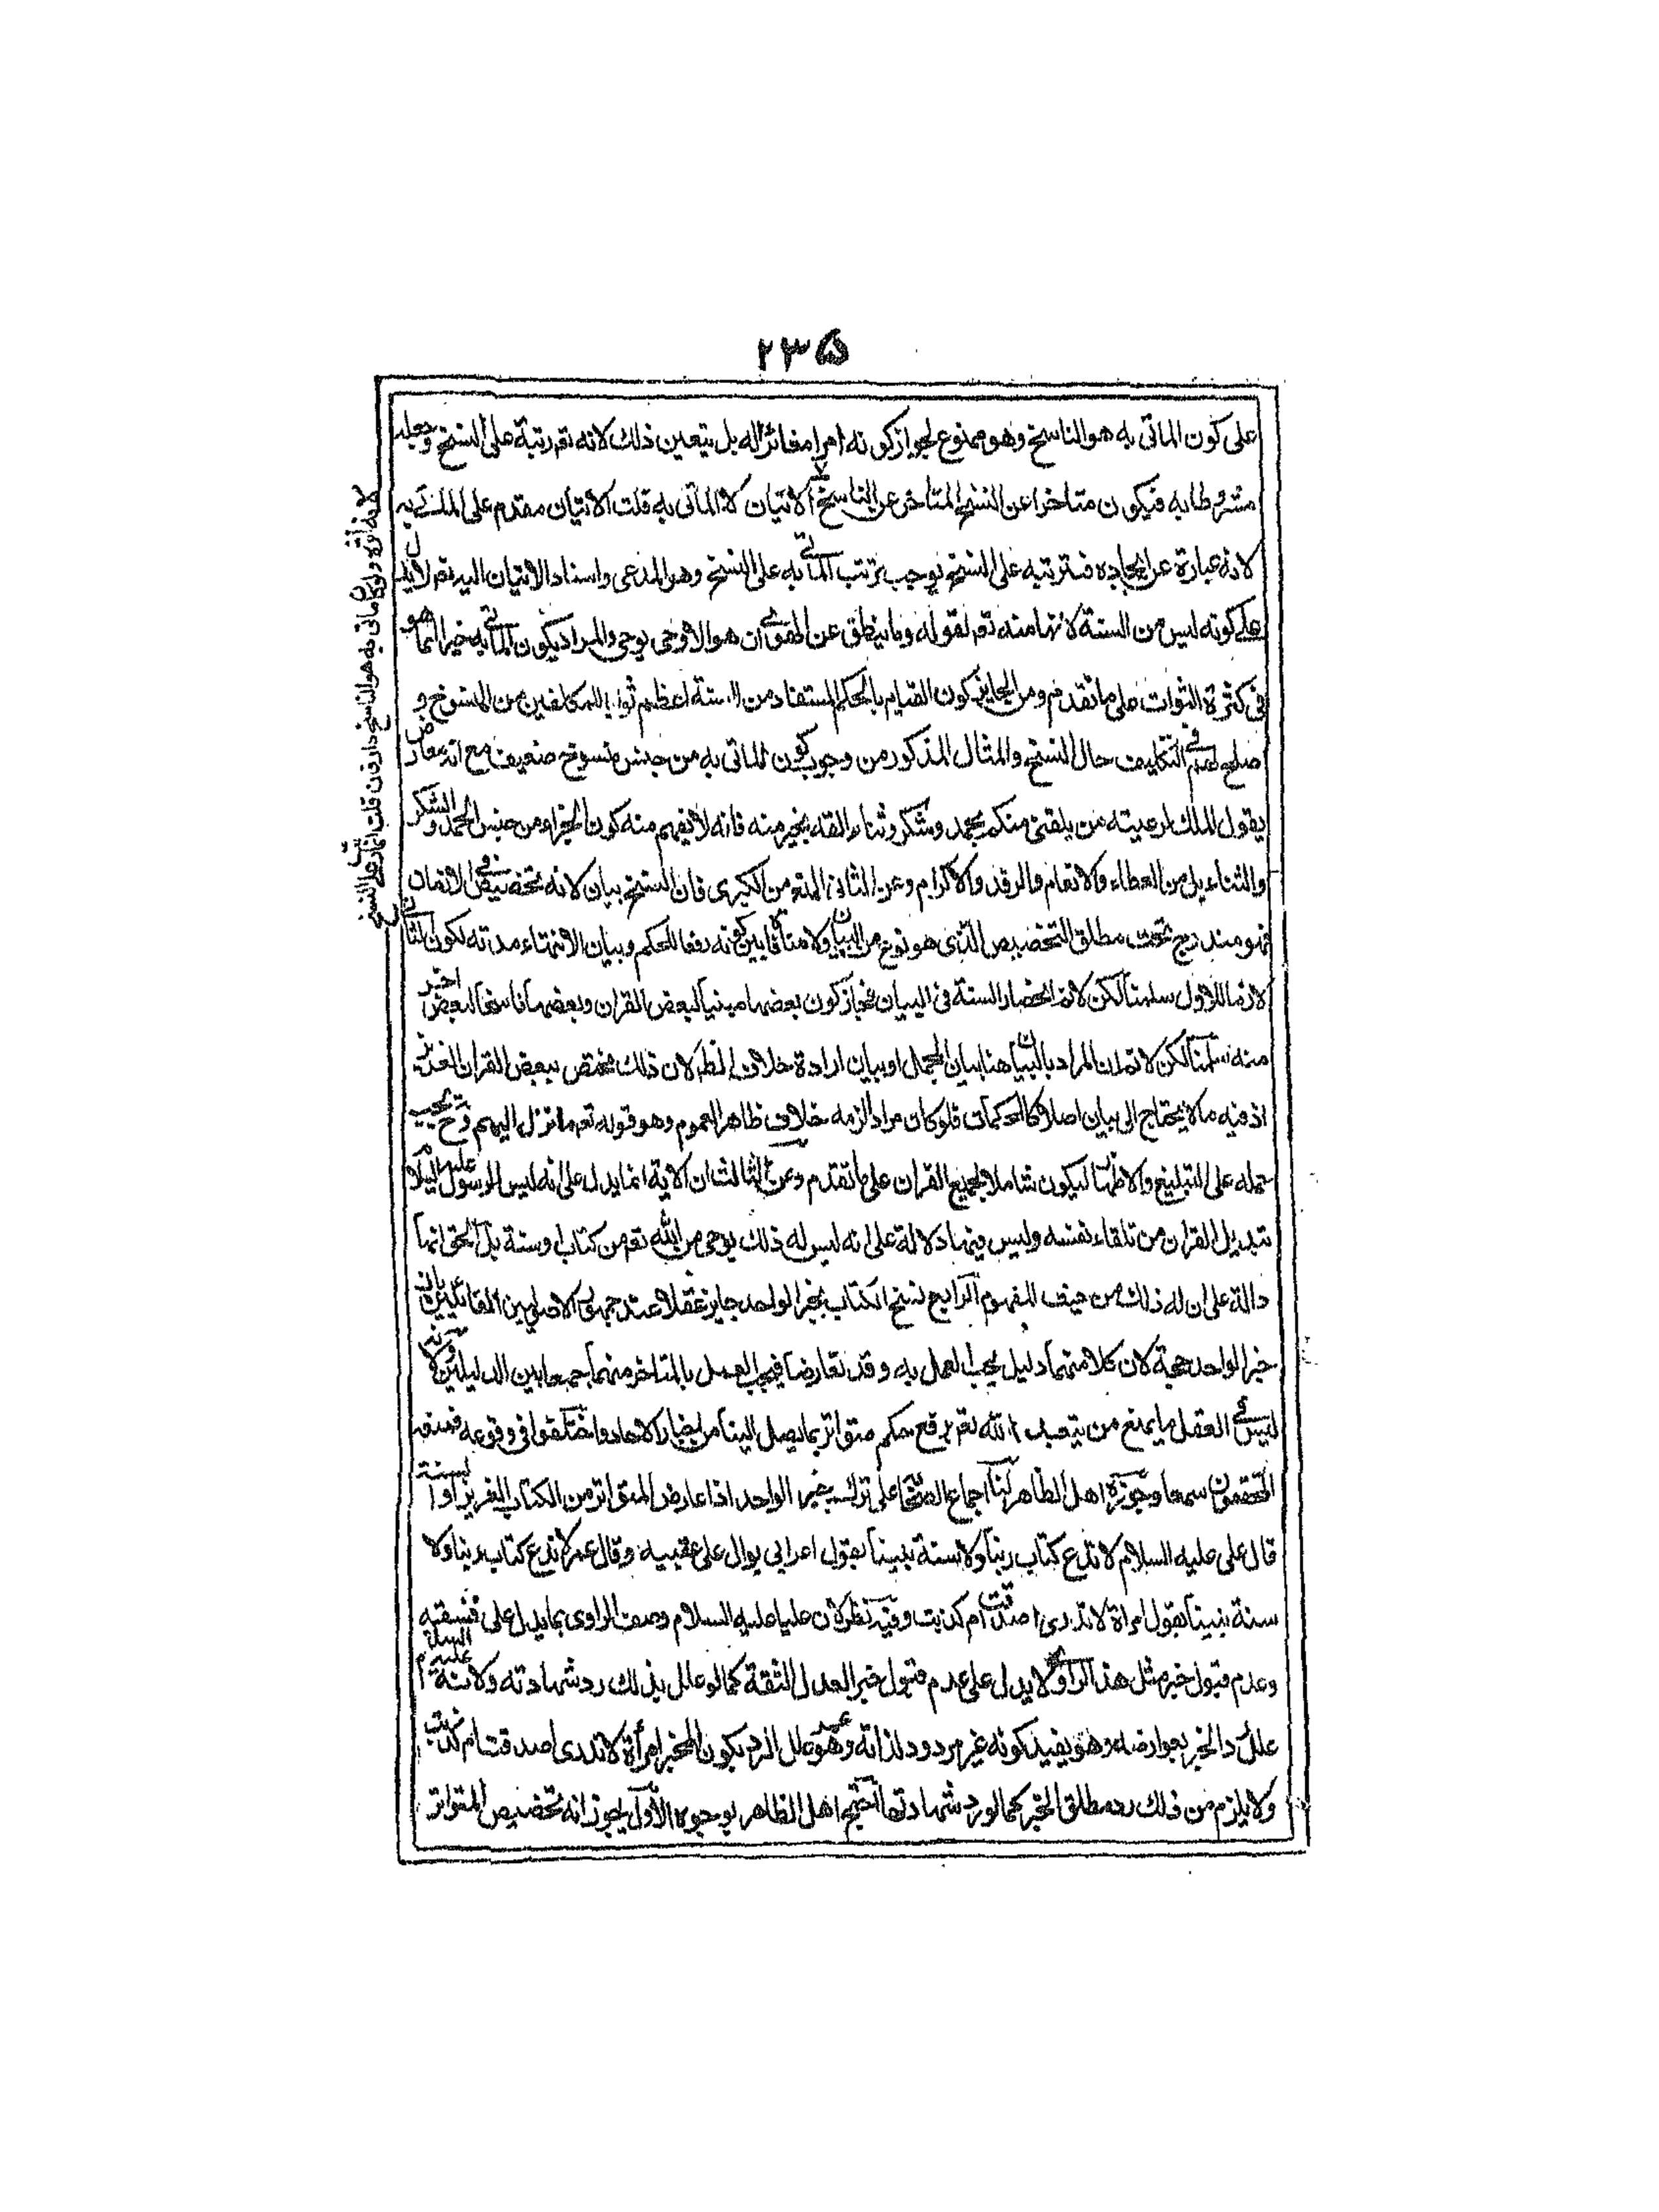 ٢٣۵
على كون الماتى به هو الناسخ وهو ممنوع لجواز كونه امرا مغائرا له بل يتعين ذلك لانه تعم رتبة على النسخ وجعله
مشروطا به فيكون متاخرا عن النسخ المتاخر عن الناسخ الاتيان لا الماتى به قلت الاتيان مقدم على الماتى به
لانه عبارة عن ايجاده فترتبه على النسخ يوجب ترتب الماتى به على النسخ وهو المدعى واسناد الاتيان اليه تعم لا يدل
على كونه ليس من السنة لانها منه تعم لقوله وما ينطق عن الهوى ان هو الا وحى يوحى والمراد بكون الماتى به خيرا انما هو
فى كثرة الثواب على ما تقدم ومن الجايز كون القيام بالحكم المستفاد من السنة اعظم ثوابا للمكلفين من المنسوخ و
اصلح لهم فى التكليف حال النسخ والمثال المذكور من وجوب كون الماتى به من جنس منسوخ ضعيف مع انه معارض
بقول الملك لرعيته من يلقنى منكم بحمد وشكر وثناء القه بخير منه فانه لا يفهم منه كون الخبر او من جنس الحمد والشكر
والثناء بل من العطاء والانعام والرفد والاكرام وعن الثانى المنع من الكبرى فان النسخ بيان لانه تخصيص فى الازمان
فهو مندرج تحت مطلق التخصيص الذى هو نوع من البيان ولا منافاة بين كونه رفعا للحكم وبيان الانتهاء مدته لكون الثانى
لازما للاول سلمنا لكن لا نم انحصار السنة فى البيان فجاز كون بعضها مبينا لبعض القران وبعضها ناسخا لبعض اخر
منه سلمنا لكن لا نم ان المراد بالبيان هنا بيان المجمل او بيان ارادة خلاف الظم لان ذلك مختص ببعض القران العزيز
اذ فيه ما لا يحتاج الى بيان اصلا كالمحكمات فلو كان مرادا لزمه خلاف ظاهر العموم وهو قوله تعم ما نزل اليهم وح يجب
حمله على التبليغ والاظهار ليكون شاملا لجميع القران على ما تقدم وعن الثالث ان الاية انما يدل على انه ليس للرسول عليه السلام
تبديل القران من تلقاء نفسه وليس فيها دلالة على انه ليس له ذلك بوحى من الله تعم من كتاب او سنة بل الحق انها
دالة على ان له ذلك من حيث المفهوم الرابع نسخ الكتاب بخبر الواحد جايز عقلا عند جمهور الاصوليين القائلين بان
خبر الواحد حجة لان كلا منهما دليل يجب العمل به وقد تعارضا فيجب العمل بالمتاخر منهما جمعا بين الدليلين ولانه
ليس فى العقل ما يمنع من يتعبد الله تعم برفع حكم متواتر بما يصل الينا من اخبار الاحاد واختلفوا فى وقوعه فمنعه
المحققون سمعا وجوزه اهل الظاهر لنا اجماع الصحابة على ترك خبر الواحد اذا عارض المتواتر من الكتاب العزيز او السنة
قال على عليه السلام لا ندع كتاب ربنا ولا سنة نبينا بقول اعرابى بوال على عقبيه وقال عمر لا ندع كتاب ربنا ولا
سنة نبينا بقول امراة لا ندرى اصدقت ام كذبت وفيه نظر لان عليا عليه السلام وصف الراوى بما يدل على فسقه
وعدم قبول خبر مثل هذا الراوى لا يدل على عدم قبول خبر العدل الثقة كما لو علل بذلك رد شهادته ولانه عليه السلام
علل رد الخبر بعوارضه وهو يفيد كونه غير مردود لذاته وعمر علل الرد بكون المخبر امرأة لا ندرى اصدقت ام كذبت
ولا يلزم من ذلك رد مطلق الخبر كما لو رد شهادتها احتج اهل الظاهر بوجوه الاول يجوز انه تخصيص المتواتر